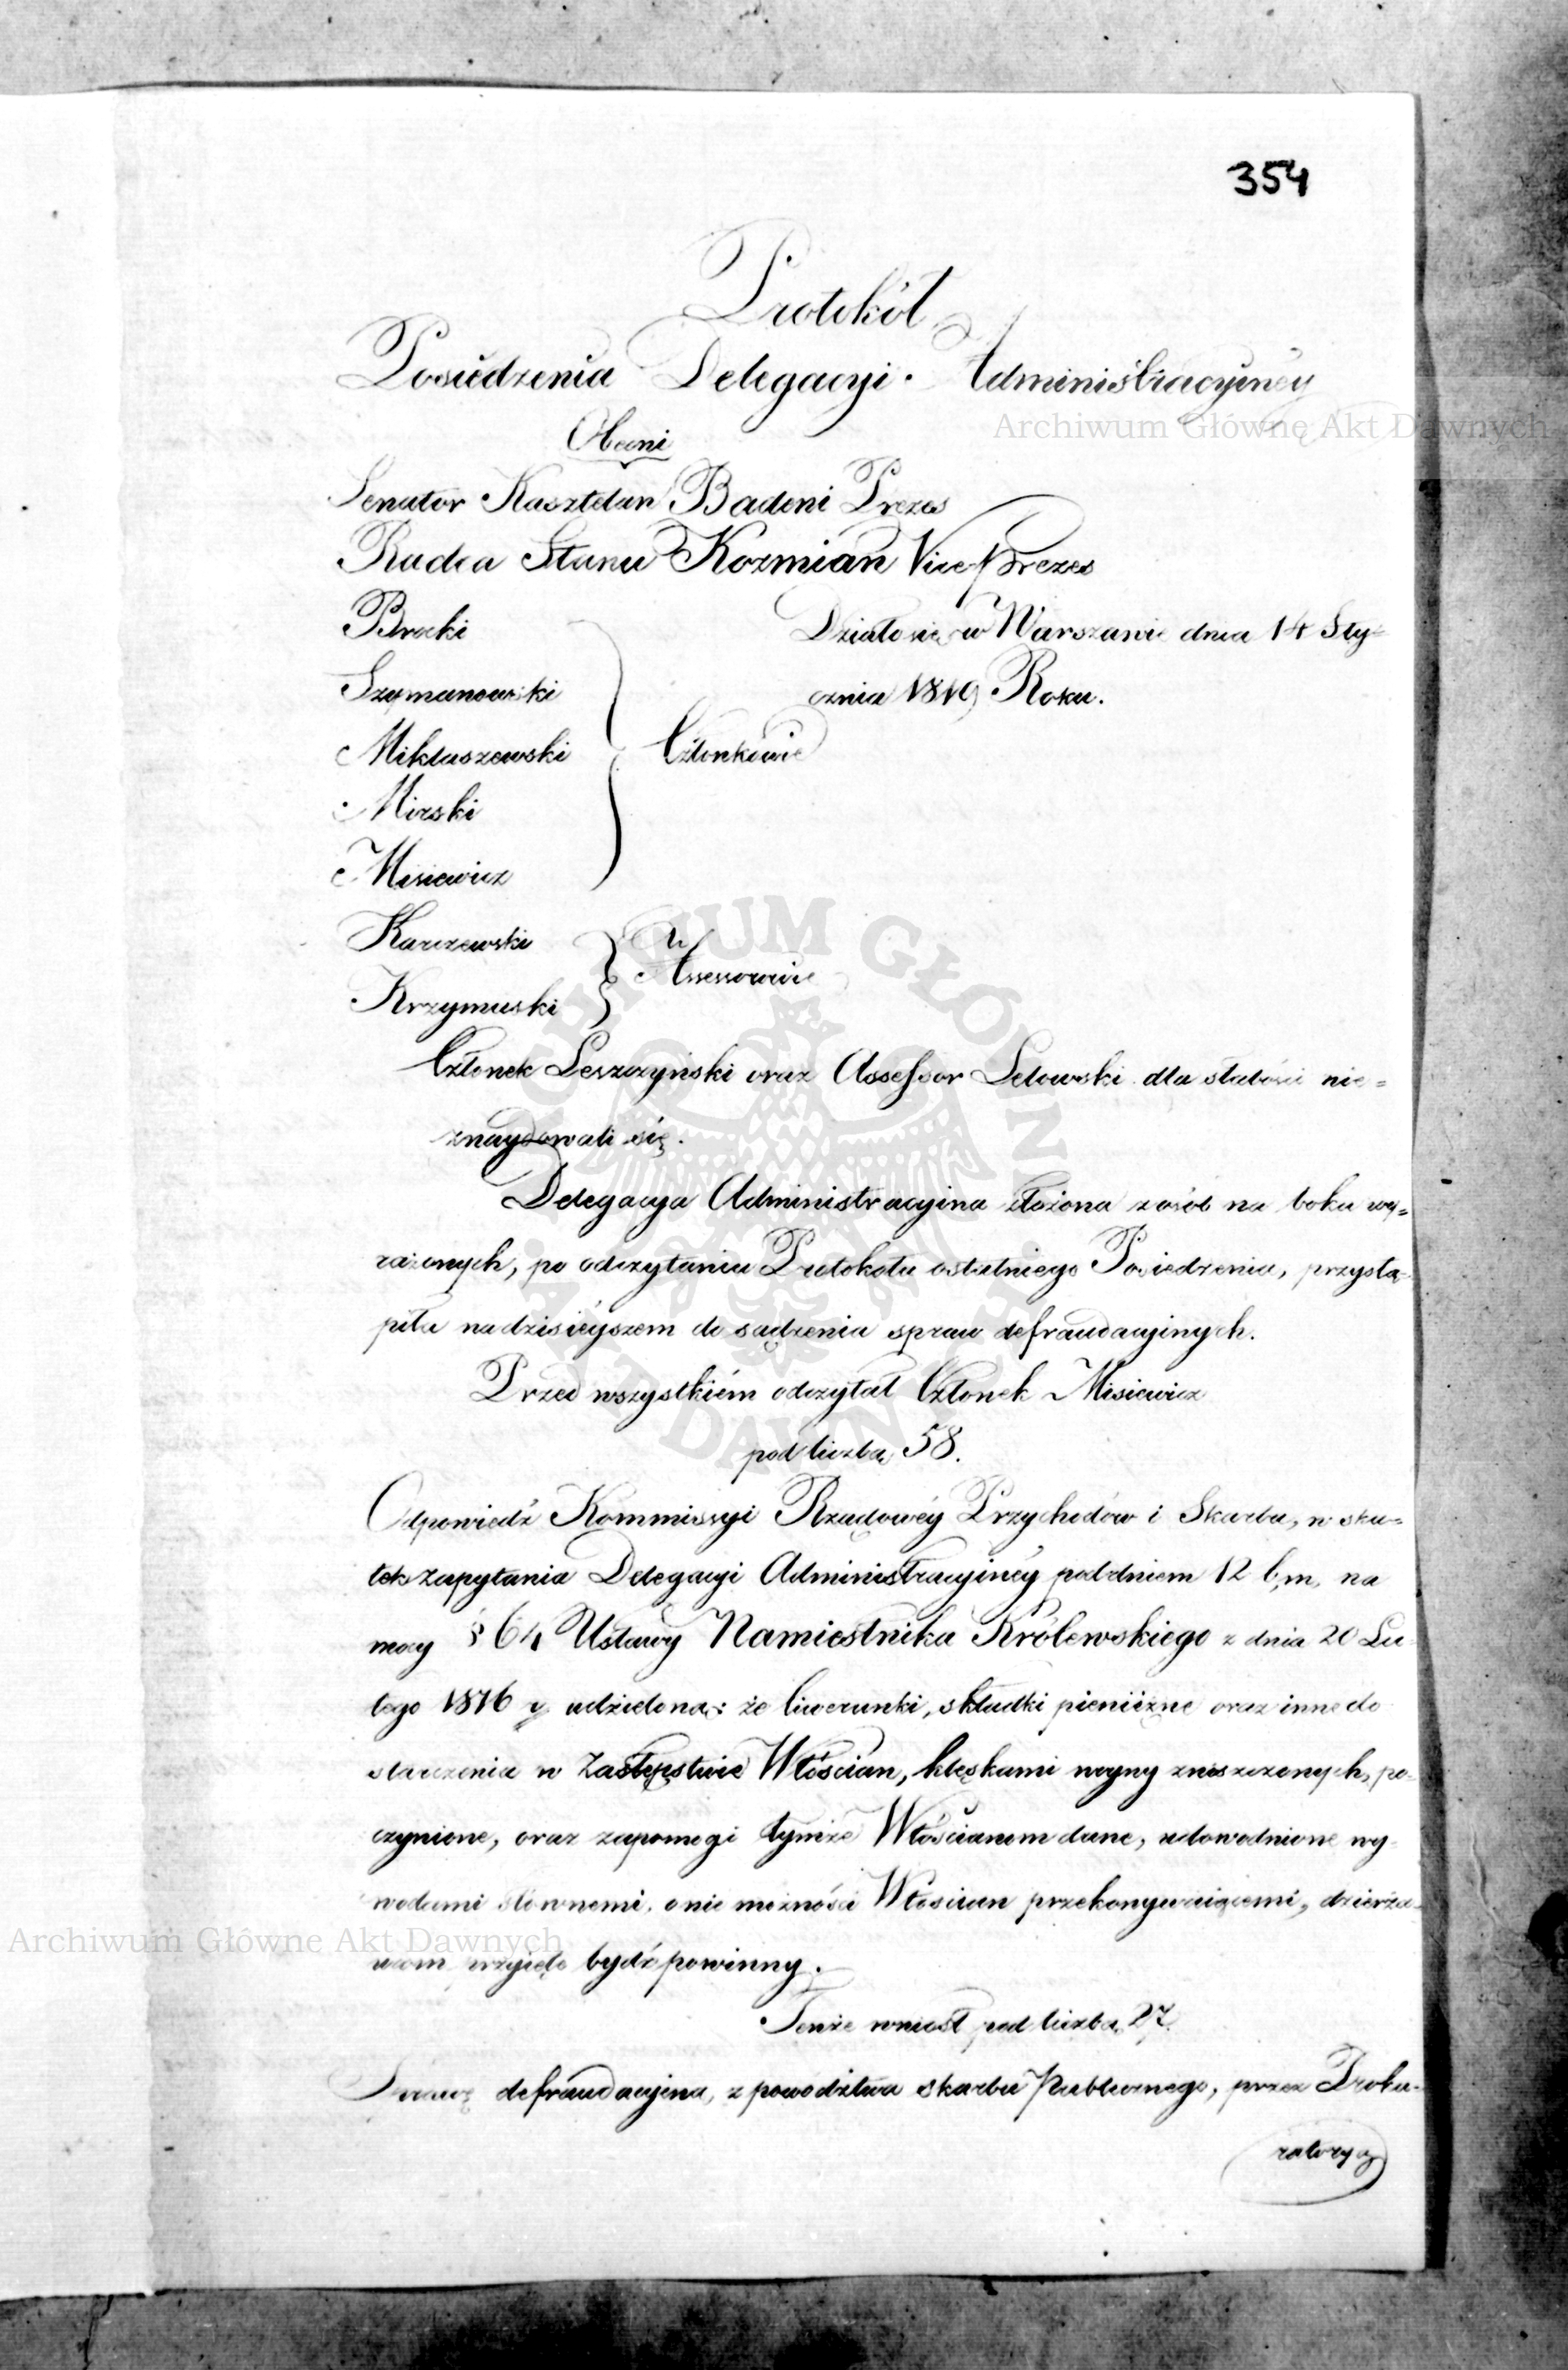 354
Protokół
Posiedzenia Delegacyi Administracyiney
Obecni
Senator Kasztelan Badeni Prezes
Radca Stanu Kozmian Vice Prezes
Brocki
Działo się w Warszawie dnia 14 Sty=
Szymanowski
cznia 1819 Roku.
Miklaszewski
Członkowie
Mirski
Misiewicz
Karczewski
Assessorowie
Krzymuski
Członek Leszczyński oraz Assessor Letowski dla słabości nie=
znaydowali się.
Delegacya Administracyina złożona z osób na boku wy=
rażonych, po odczytaniu Protokołu ostatniego Posiedzenia, przystą-
piła na dzisiéyszem do sądzenia spraw defraudacyinych.
Przed wszystkiém odczytał Członek Misiewicz
pod liczbą 58.
Odpowiedź Kommissyi Rządowéy Przychodów i Skarbu, w sku=
tek zapytania Delegacyi Administracyinéy pod dniem 12 b. m. na
mocy § 64 Ustawy Namiestnika Królewskiego z dnia 20 Lu-
tego 1816 r. udzieloną: że liwerunki, składki pieniężne oraz inne do
starczenia w Zastępstwie Włościan, klęskami woyny zniszczonych, po-
czynione, oraz zapomogi tymże Włościanom dane, udowodnione wy-
wodami słownemi, o nie możności Włościan przekonywaiącemi, dzierża-
wcom przyięte bydź powinny.
Tenże wniosł pod liczbą 27.
Sprawę defraudacyiną, z powodztwa skarbu Publicznego, przez Proku-
ratoryą
Archiwum Główne Akt Dawnych
Archiwum Główne Akt Dawnych
ARCHIWUM GŁÓWNE AKT DAWNYCH